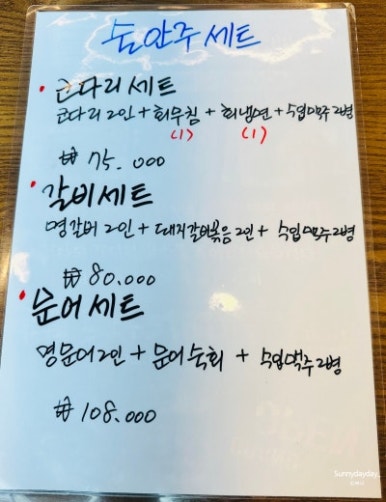 술안주세트
• 군다리세트
군다리 2인 + 회무침 + 회냉면 + 수입맥주 2병
(1) (1)
₩ 75.000
• 갈비세트
명갈비 2인 + 돼지갈비볶음 2인 + 수입맥주 2병
₩ 80.000
• 문어세트
명문어 2인 + 문어숙회 + 수입맥주 2병
₩ 108.000
Sunnydayday